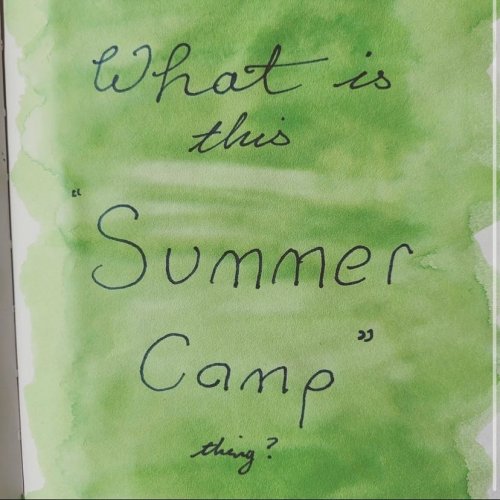 What is
this
"Summer
Camp"
thing?